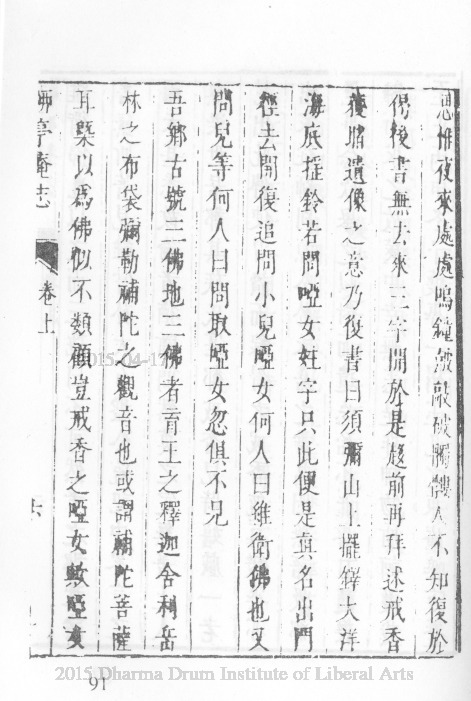 思惟夜來處處鳴鐘皷敲破髑髏人不知復於
偈後書無去來三字開於是趍前再拜述戒香
獲瞻遺像之意乃復書曰須彌山上擺鐸大洋
海底搖鈴若問啞女姓字只此便是真名出門
徑去開復追問小兒啞女何人曰維衛佛也又
問兒等何人曰問取啞女忽俱不見
吾鄉古號三佛地三佛者育王之釋迦舍利岳
林之布袋彌勒補陀之觀音也或謂補陀菩薩
耳槩以爲佛似不類顧豈戒香之啞女歟啞女
亭庵志
卷上
2015-04-1
2015 Dharma Drum Institute of Liberal Arts
91